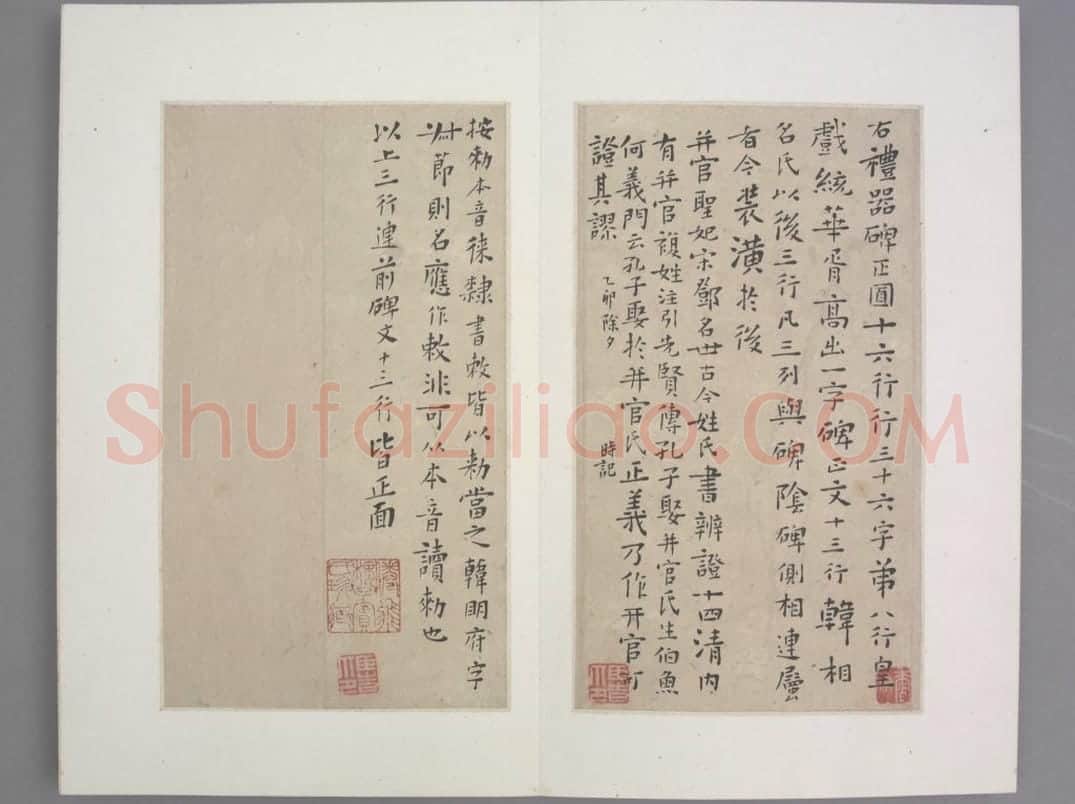 右禮器碑正圓十六行行三十六字弟八行皇
戲統華胥高出一字碑正文十三行韓相
名氏以後三行凡三列與碑陰碑側相連屬
者今裝潢於後
并官聖妃宋鄧名世古今姓氏書辨證十四清內
有并官複姓注引先賢傳孔子娶并官氏生伯魚
何義門云孔子娶於并官氏正義乃作开官可
證其謬
乙卯除夕
時記
按勑本音徠隸書敕皆以勑當之韓明府字
叔節則名應作敕非可以本音讀勑也
以上三行連前碑文十三行皆正面
Shufaziliao.COM